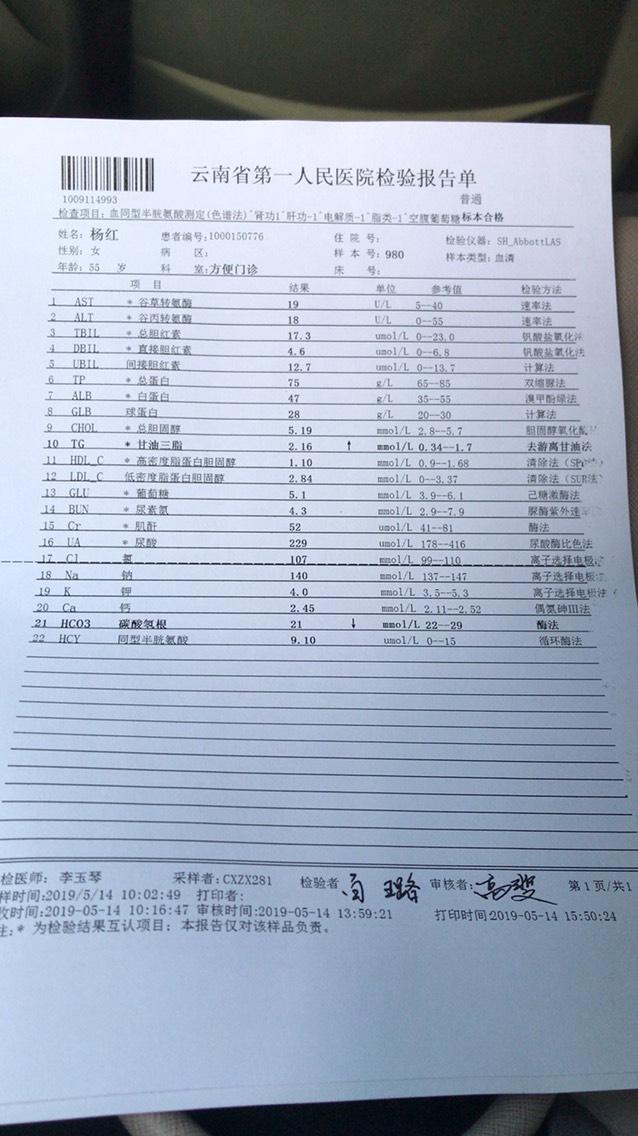 云南省第一人民医院检验报告单
1009114993
普通
检查项目: 血同型半胱氨酸测定(色谱法)^肾功1^肝功-1^电解质-1^脂类-1^空腹葡萄糖 标本合格
姓名: 杨红 患者编号:1000150776 住 院 号: 检验仪器: SH_AbbottLAS
性别: 女 病 区: 样 本 号: 980 样本类型:血清
年龄: 55 岁 科 室:方便门诊 床 号:
项 目 结果 单位 参考值 检验方法
1 AST * 谷草转氨酶 19 U/L 5--40 速率法
2 ALT * 谷丙转氨酶 18 U/L 0--55 速率法
3 TBIL * 总胆红素 17.3 umol/L 0--23.0 钒酸盐氧化法
4 DBIL * 直接胆红素 4.6 umol/L 0--6.8 钒酸盐氧化法
5 UBIL 间接胆红素 12.7 umol/L 0--13.7 计算法
6 TP * 总蛋白 75 g/L 65--85 双缩脲法
7 ALB * 白蛋白 47 g/L 35--55 溴甲酚绿法
8 GLB 球蛋白 28 g/L 20--30 计算法
9 CHOL * 总胆固醇 5.19 mmol/L 2.8--5.7 胆固醇氧化酶
10 TG * 甘油三脂 2.16 ↑ mmol/L 0.34--1.7 去游离甘油法
11 HDL_C * 高密度脂蛋白胆固醇 1.10 mmol/L 0.9--1.68 清除法
12 LDL_C 低密度脂蛋白胆固醇 2.84 mmol/L 0--3.37 清除法（SUR法）
13 GLU * 葡萄糖 5.1 mmol/L 3.9--6.1 己糖激酶法
14 BUN * 尿素氮 4.3 mmol/L 2.9--7.9 脲酶紫外速率
15 Cr * 肌酐 52 umol/L 41--81 酶法
16 UA * 尿酸 229 umol/L 178--416 尿酸酶比色法
17 Cl 氯 107 mmol/L 99--110 离子选择电极法
18 Na 钠 140 mmol/L 137--147 离子选择电极法
19 K 钾 4.0 mmol/L 3.5--5.3 离子选择电极法
20 Ca 钙 2.45 mmol/L 2.11--2.52 偶氮砷III法
21 HCO3 碳酸氢根 21 ↓ mmol/L 22--29 酶法
22 HCY 同型半胱氨酸 9.10 umol/L 0--15 循环酶法
检医师: 李玉琴 采样者:CXZX281 检验者 审核者: 第1页/共1
样时间:2019/5/14 10:02:49 打印者:
收时间:2019-05-14 10:16:47 审核时间:2019-05-14 13:59:21 打印时间:2019-05-14 15:50:24
注:* 为检验结果互认项目; 本报告仅对该样品负责。